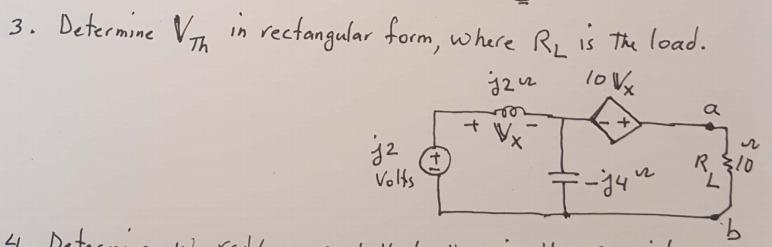 3. Determine V_Th in rectangular form, where R_L is the load.
j2Ω 10 Vx
a
+ Vx - - +
j2 Volts
+ -
-j4Ω
R_L 10Ω
b
4. Determine